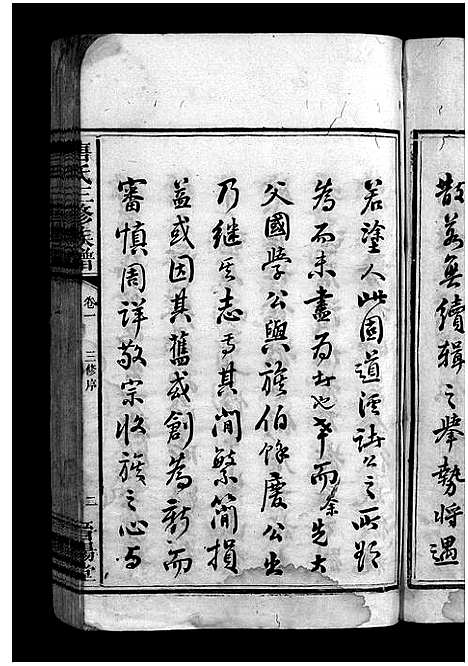 散若無續輯之舉勢將遇
若塗人此固道涇諸公之所欲
為而未盡為者也幸而余先大
父國學公與族伯餘慶公出
乃繼其志焉其間繁簡損
益或因其舊或創為新而
審慎周詳敬宗收族之心與
唐氏三修族譜
卷一
三修序
二
晉陽堂